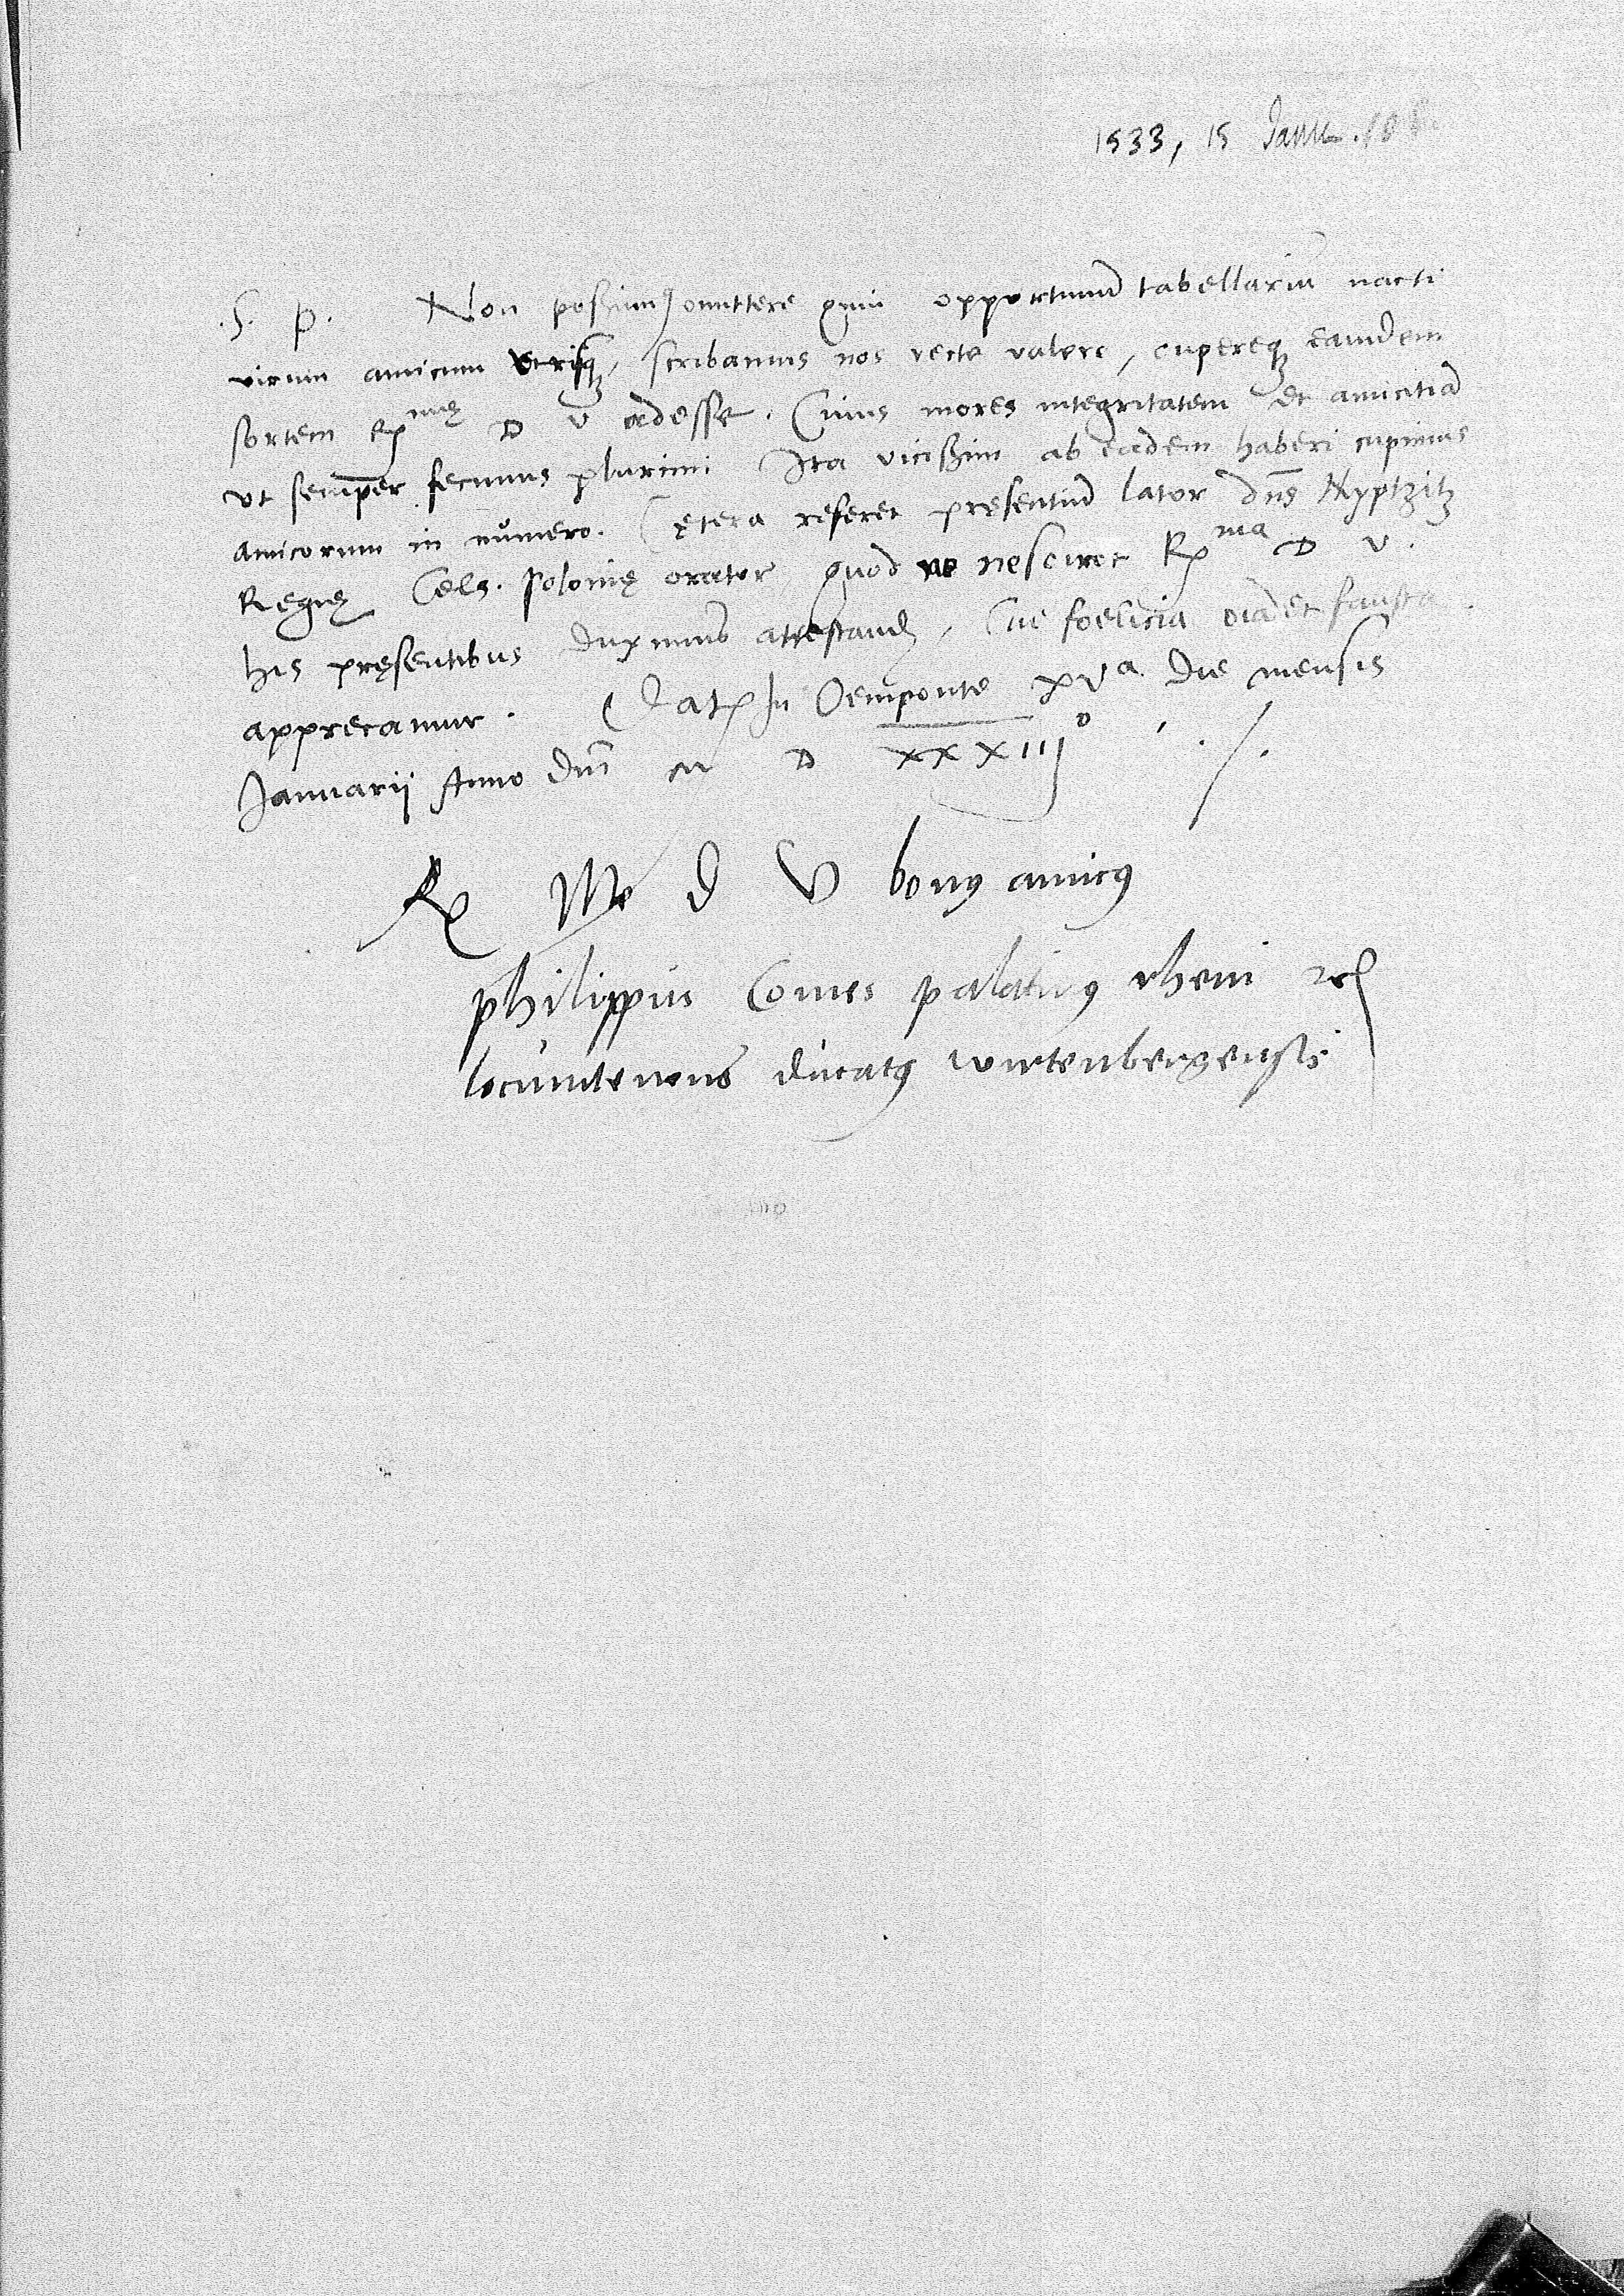 1533, 15 Janu.
.S. P. Non possumus omittere quin opportunum tabellarium nacti
virum amicum utrisque, scribamus nos recte valere, cupereque eamdem
sortem R(mę) D V adesse. Cuius mores integritatem et amicitiam
ut semper fecimus plurimi Ita vicissim ab eadem haberi cupimus
amicorum in numero. Cętera referet pręsentium lator dns Nyptzitz
Regię Cels. Polonię orator, quod ne nesciret R(ma) D V.
his pręsentibus duximus attestand, Cui foelicia oia et fausta
apprecamur. Dat In Oeniponte xv a die mensis
Januarij Anno Dni M D XXXIII o ./.
R Me D V bonus amicus
philippus Comes palatinus rheni etc
locumtenens ducatus wirtenbergensis